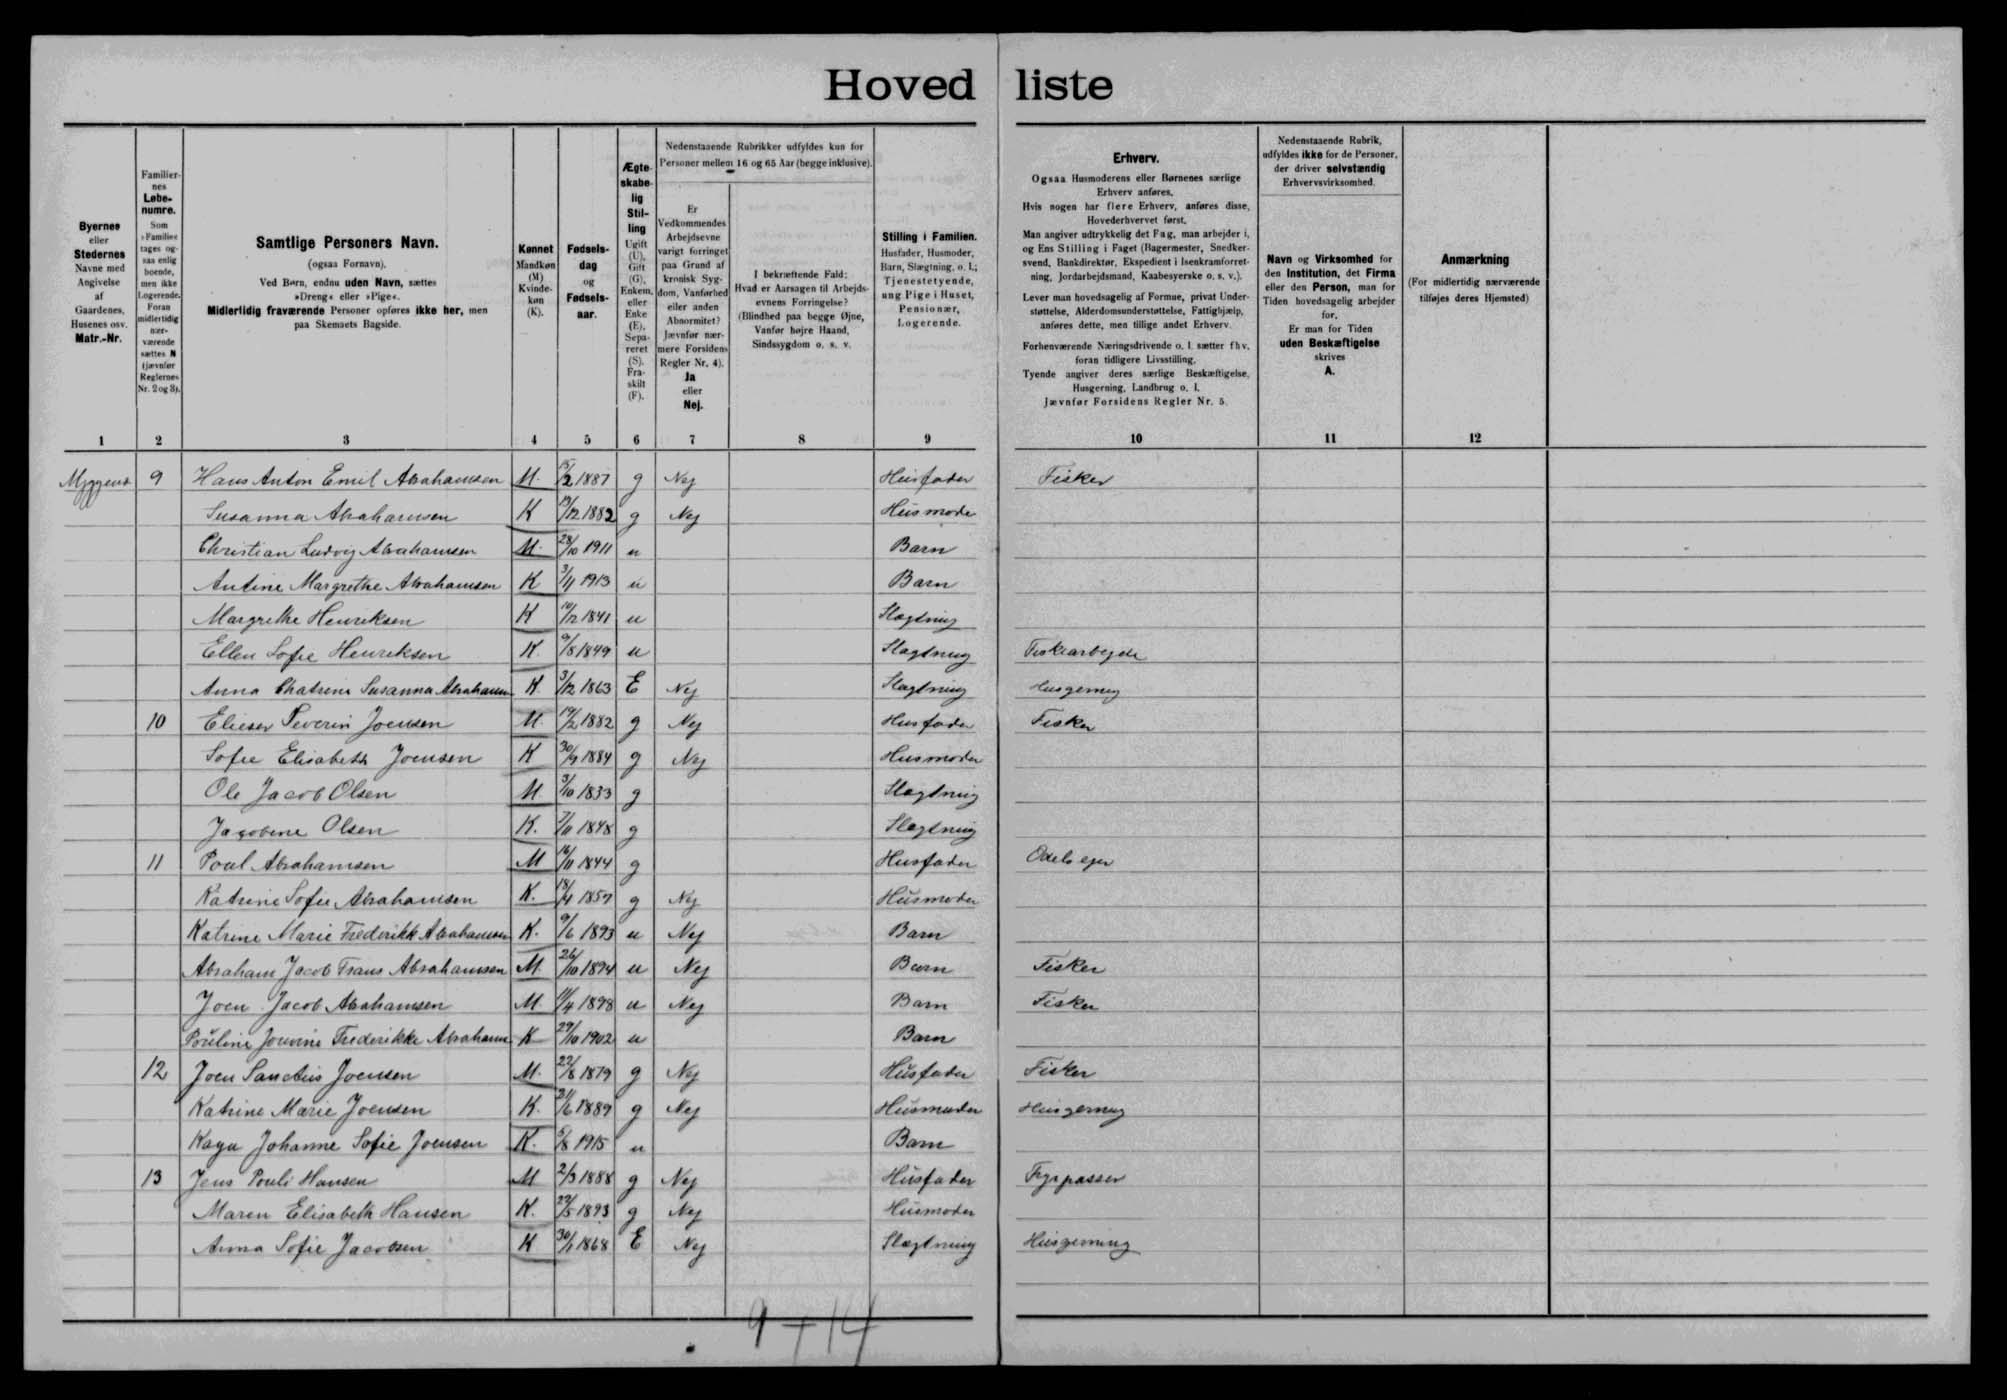 Hoved liste
Byernes eller Stedernes Navne med Angivelse af Gaardenes, Husenes osv. Matr.-Nr.
Familiernes Løbenumre. Som »Familie« tages ogsaa enlig boende, men ikke Logerende. Foran midlertidig nærværende sættes N (jævnfør Reglernes Nr. 2 og 3).
Samtlige Personers Navn. (ogsaa Fornavn). Ved Børn, endnu uden Navn, sættes »Dreng« eller »Pige«. Midlertidig fraværende Personer opføres ikke her, men paa Skemaets Bagside.
Kønnet Mandkøn (M) Kvindekøn (K).
Fødselsdag og Fødselsaar.
Ægteskabelig Stilling Ugift (U), Gift (G), Enkem. eller Enke (E), Separeret (S). Fraskilt (F).
Nedenstaaende Rubrikker udfyldes kun for Personer mellem 16 og 65 Aar (begge inklusive).
Er Vedkommendes Arbejdsevne varigt forringet paa Grund af kronisk Sygdom, Vanførhed eller anden Abnormitet? Jævnfør nærmere Forsidens Regler Nr. 4). Ja eller Nej.
I bekræftende Fald: Hvad er Aarsagen til Arbejdsevnens Forringelse? (Blindhed paa begge Øjne, Vanfør højre Haand, Sindssygdom o. s. v.
Stilling i Familien. Husfader, Husmoder, Barn, Slægtning, o. l.; Tjenestetyende, ung Pige i Huset, Pensionær, Logerende.
Erhverv.
Ogsaa Husmoderens eller Børnenes særlige Erhverv anføres.
Hvis nogen har flere Erhverv, anføres disse, Hovederhvervet først.
Man angiver udtrykkelig det Fag, man arbejder i, og Ens Stilling i Faget (Bagermester, Snedkersvend, Bankdirektør, Ekspedient i Isenkramforretning, Jordarbejdsmand, Kaabesyerske o. s. v.).
Lever man hovedsagelig af Formue, privat Understøttelse, Alderdomsunderstøttelse, Fattighjælp, anføres dette, men tillige andet Erhverv.
Forhenværende Næringsdrivende o. l. sætter fhv. foran tidligere Livsstilling.
Tyende angiver deres særlige Beskæftigelse, Husgerning, Landbrug o. l.
Jævnfør Forsidens Regler Nr. 5.
Nedenstaaende Rubrik, udfyldes ikke for de Personer, der driver selvstændig Erhvervsvirksomhed.
Navn og Virksomhed for den Institution, det Firma eller den Person, man for Tiden hovedsagelig arbejder for.
Er man for Tiden uden Beskæftigelse skrives A.
Anmærkning (For midlertidig nærværende tilføjes deres Hjemsted)
1 2 3 4 5 6 7 8 9 10 11 12
Myggenæs 9 Hans Anton Emil Abrahamsen M. 15/2 1887 g Nej Husfader Fisker
Susanna Abrahamsen K 13/12 1882 g Nej Husmode
Christian Ludvig Abrahamsen M. 28/10 1911 u Barn
Antine Margrethe Abrahamsen K 3/11 1913 u Barn
Margrethe Henriksen K 10/12 1841 u Slægtning
Ellen Sofie Henriksen K. 9/8 1849 u Slægtning Fiskearbejde
Anna Chatrine Susanna Abrahamsen K. 3/12 1863 E Nej Slægtning Husgerning
10 Elieser Severin Joensen M. 19/2 1882 g Nej Husfader Fisker
Sofie Elisabeth Joensen K 30/9 1884 g Nej Husmoder
Ole Jacob Olsen M 3/10 1833 g Slægtning
Jacobine Olsen K. 7/11 1848 g Slægtning
11 Poul Abrahamsen M 16/11 1844 g Husfader Odelsejer
Katrine Sofie Abrahamsen K. 18/4 1857 g Nej Husmoder
Katrine Marie Frederikk Abrahamsen K. 9/6 1893 u Nej Barn
Abraham Jacob Frans Abrahamsen M. 26/10 1894 u Nej Barn Fisker
Joen Jacob Abrahamsen M 11/4 1898 u Nej Barn Fisker
Pouline Jovine Frederikke Abraham K 29/10 1902 u Barn
12 Joen Sanctus Joensen M. 22/8 1879 g Nej Husfader Fisker
Katrine Marie Joensen K. 21/6 1889 g Nej Husmoder Husgerning
Kaya Johanne Sofie Joensen K. 5/8 1915 u Barn
13 Jens Pouli Hansen M 2/3 1888 g Nej Husfader Fyrpasser
Maren Elisabeth Hansen K. 29/5 1893 g Nej Husmoder
Anna Sofie Jacobsen K 30/1 1868 E Nej Slægtning Husgerning
9 + 14